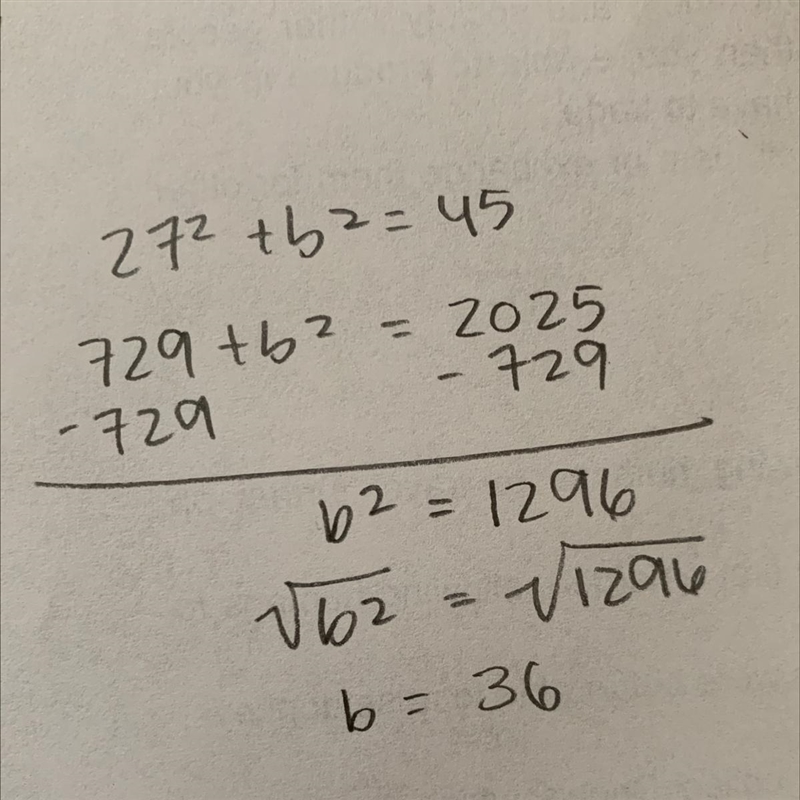 27² + b² = 45
729 + b² = 2025
-729 - 729
b² = 1296
√b² = √1296
b = 36